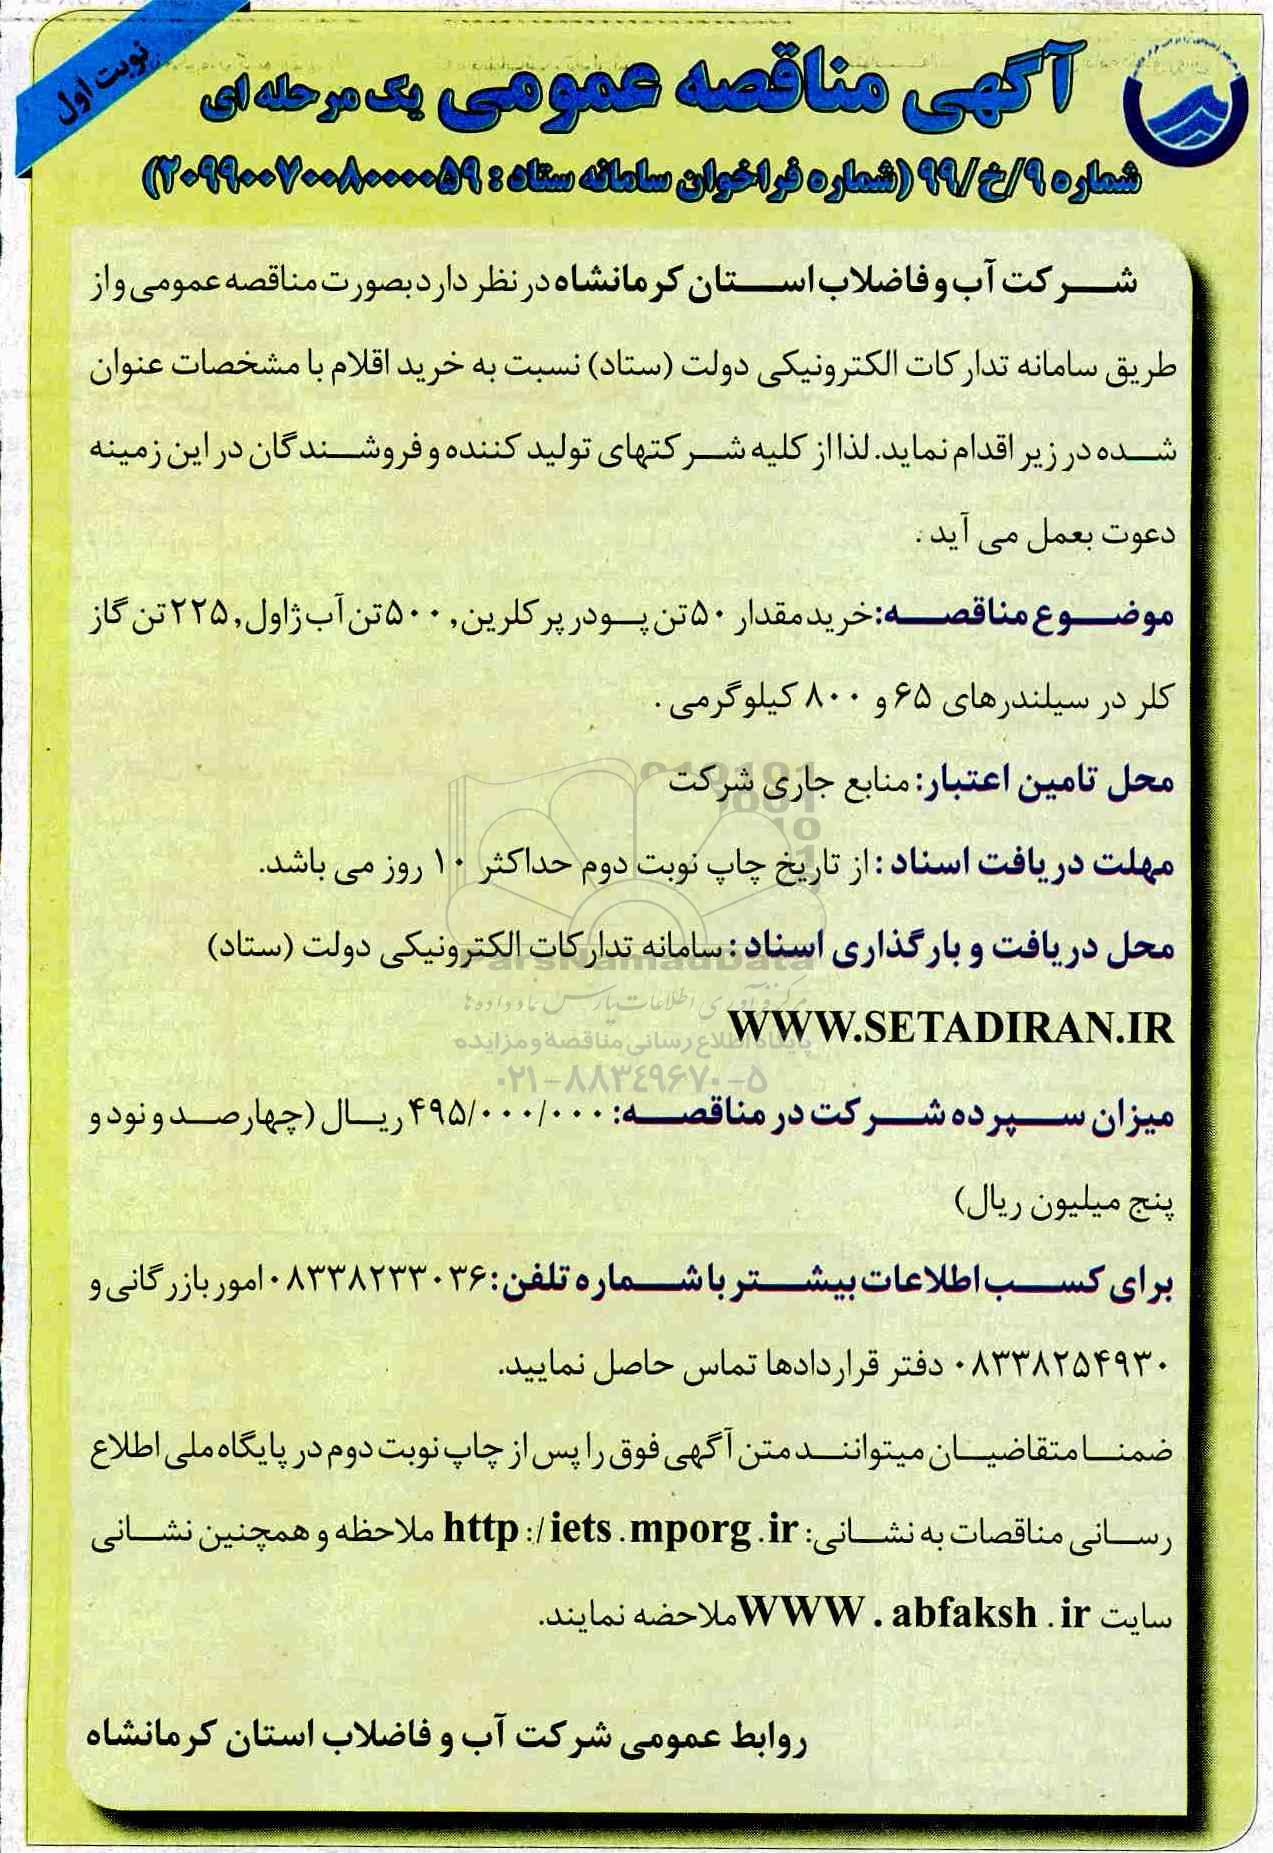 نوبت اول
آگهی مناقصه عمومی یک مرحله ای
شماره ۹/خ/۹۹ (شماره فراخوان سامانه ستاد : ۲۰۹۹۰۰۷۰۰۸۰۰۰۰۵۹)
شرکت آب و فاضلاب استان کرمانشاه در نظر دارد بصورت مناقصه عمومی و از
طریق سامانه تدارکات الکترونیکی دولت (ستاد) نسبت به خرید اقلام با مشخصات عنوان
شده در زیر اقدام نماید. لذا از کلیه شرکتهای تولید کننده و فروشندگان در این زمینه
دعوت بعمل می آید .
موضوع مناقصه: خرید مقدار ۵۰ تن پودر پرکلرین, ۵۰۰ تن آب ژاول, ۲۲۵ تن گاز
کلر در سیلندرهای ۶۵ و ۸۰۰ کیلوگرمی .
محل تامین اعتبار: منابع جاری شرکت
مهلت دریافت اسناد : از تاریخ چاپ نوبت دوم حداکثر ۱۰ روز می باشد.
محل دریافت و بارگذاری اسناد : سامانه تدارکات الکترونیکی دولت (ستاد)
ParsNamadData
مرکز فرآوری اطلاعات پارس نماد داده ها
WWW.SETADIRAN.IR
پایگاه اطلاع رسانی مناقصه و مزایده
۰۲۱-۸۸۳۴۹۶۷۰-۵
میزان سپرده شرکت در مناقصه: ۴۹۵/۰۰۰/۰۰۰ ریال (چهارصد و نود و
پنج میلیون ریال)
برای کسب اطلاعات بیشتر با شماره تلفن: ۰۸۳۳۸۲۳۳۰۳۶ امور بازرگانی و
۰۸۳۳۸۲۵۴۹۳۰ دفتر قراردادها تماس حاصل نمایید.
ضمنا متقاضیان میتوانند متن آگهی فوق را پس از چاپ نوبت دوم در پایگاه ملی اطلاع
رسانی مناقصات به نشانی: http :/ iets .mporg .ir ملاحظه و همچنین نشانی
سایت WWW . abfaksh . ir ملاحضه نمایند.
روابط عمومی شرکت آب و فاضلاب استان کرمانشاه